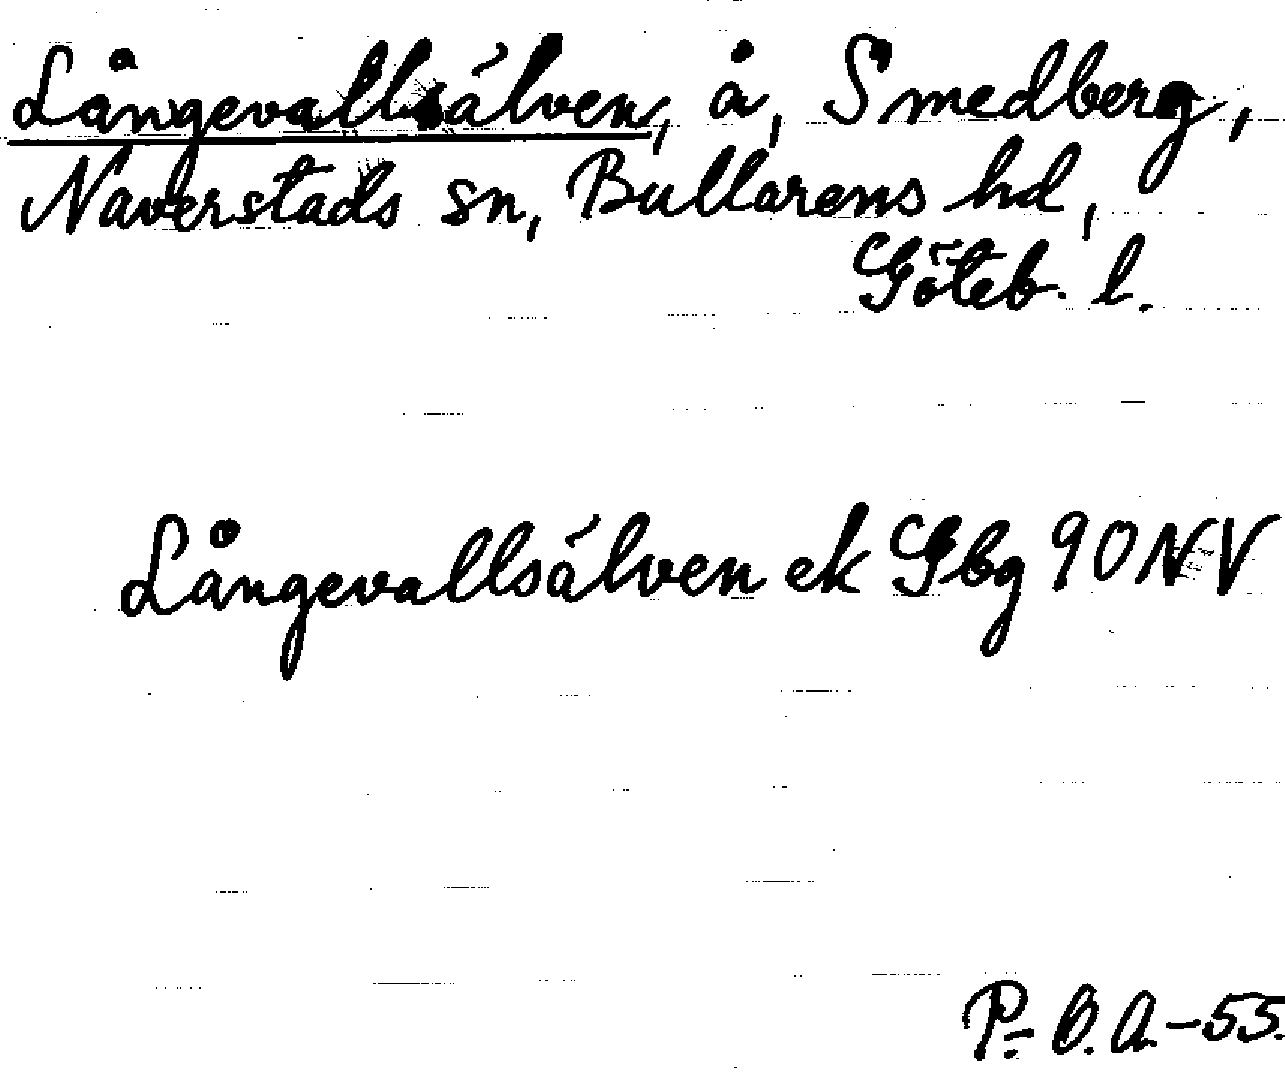 Långevallsälven, å, Smedberg,
Naverstads sn, Bullarens hd,
Göteb. l.
Långevallsälven ek Gbg 90 NV
P-O. A. -55.